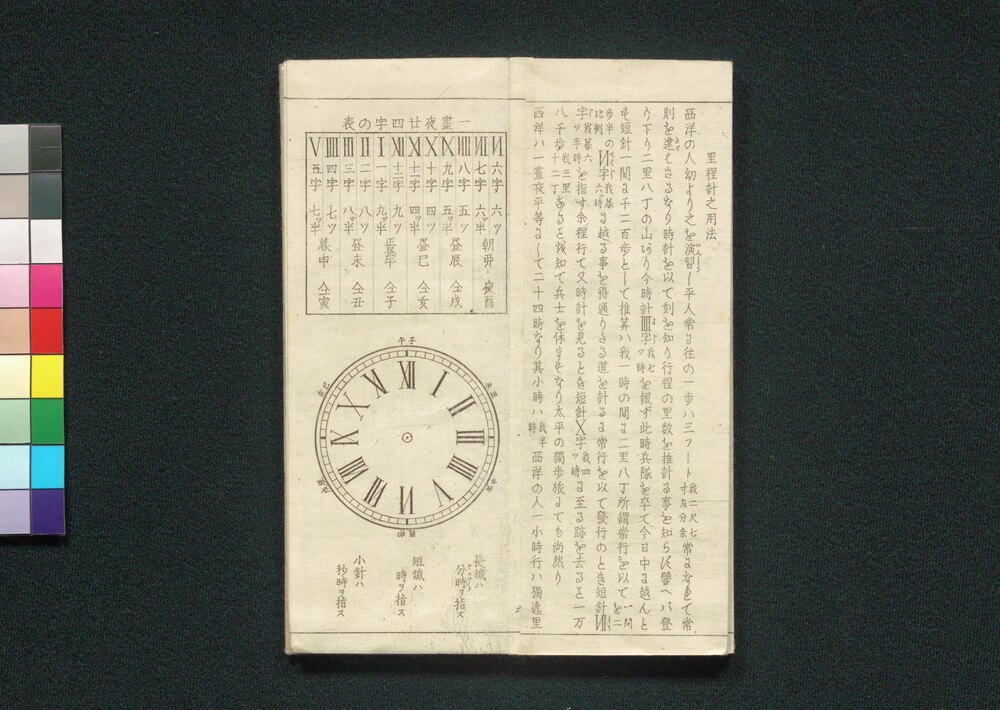 里程計之用法
西洋の人幼より之を演習し平人常に往の一歩ハ三フート我二尺七寸九分余常になれて常
則を違さるなり時計を以て刻を知り行程の里数を推計る事を知らバ譬ヘバ登
り下り二里八丁の山あり今時計ⅢⅠ字我七ッ時を報ず此時兵隊を卒て今日中に越んと
も短針一間に千二百歩として推算ハ我一時の間に二里八丁所謂常行を以て一間を二
歩半の比例Ⅵ字我暮六時に越る事を得通りさる道を計るに常行を以て發行のとき短針Ⅶ
字我暮六ッ半時を指す余程行て又時計を見るとき短針Ⅹ字我四ッ時に至る跡を去ると一万
八千歩我三里十二丁あると浅知て兵士を休ますなり太平の獨歩旅にても尚然り
西洋ハ一晝夜平等にして二十四時なり其小時ハ我半時西洋の人一小時行ハ獨逸里
一晝夜廿四字の表
Ⅵ Ⅶ Ⅷ Ⅸ Ⅹ Ⅺ Ⅻ Ⅰ Ⅱ Ⅲ ⅢⅠ Ⅴ
六字 七字 八字 九字 十字 十一字 十二字 一字 二字 三字 四字 五字
六ッ 六ッ半 五ッ 五ッ半 四ッ 四ッ半 九ッ 九ッ半 八ッ 八ッ半 七ッ 七ッ半
朝卯 夜酉
昼辰 仝戌
昼巳 仝亥
仝子
昼未 仝丑
暮申 仝寅
午子
Ⅻ Ⅰ Ⅱ Ⅲ ⅢⅠ Ⅴ Ⅵ Ⅶ Ⅷ Ⅸ Ⅹ Ⅺ
長鍼ハ
分時ヲ指ス
短鍼ハ
時ヲ指ス
小針ハ
秒時ヲ指ス